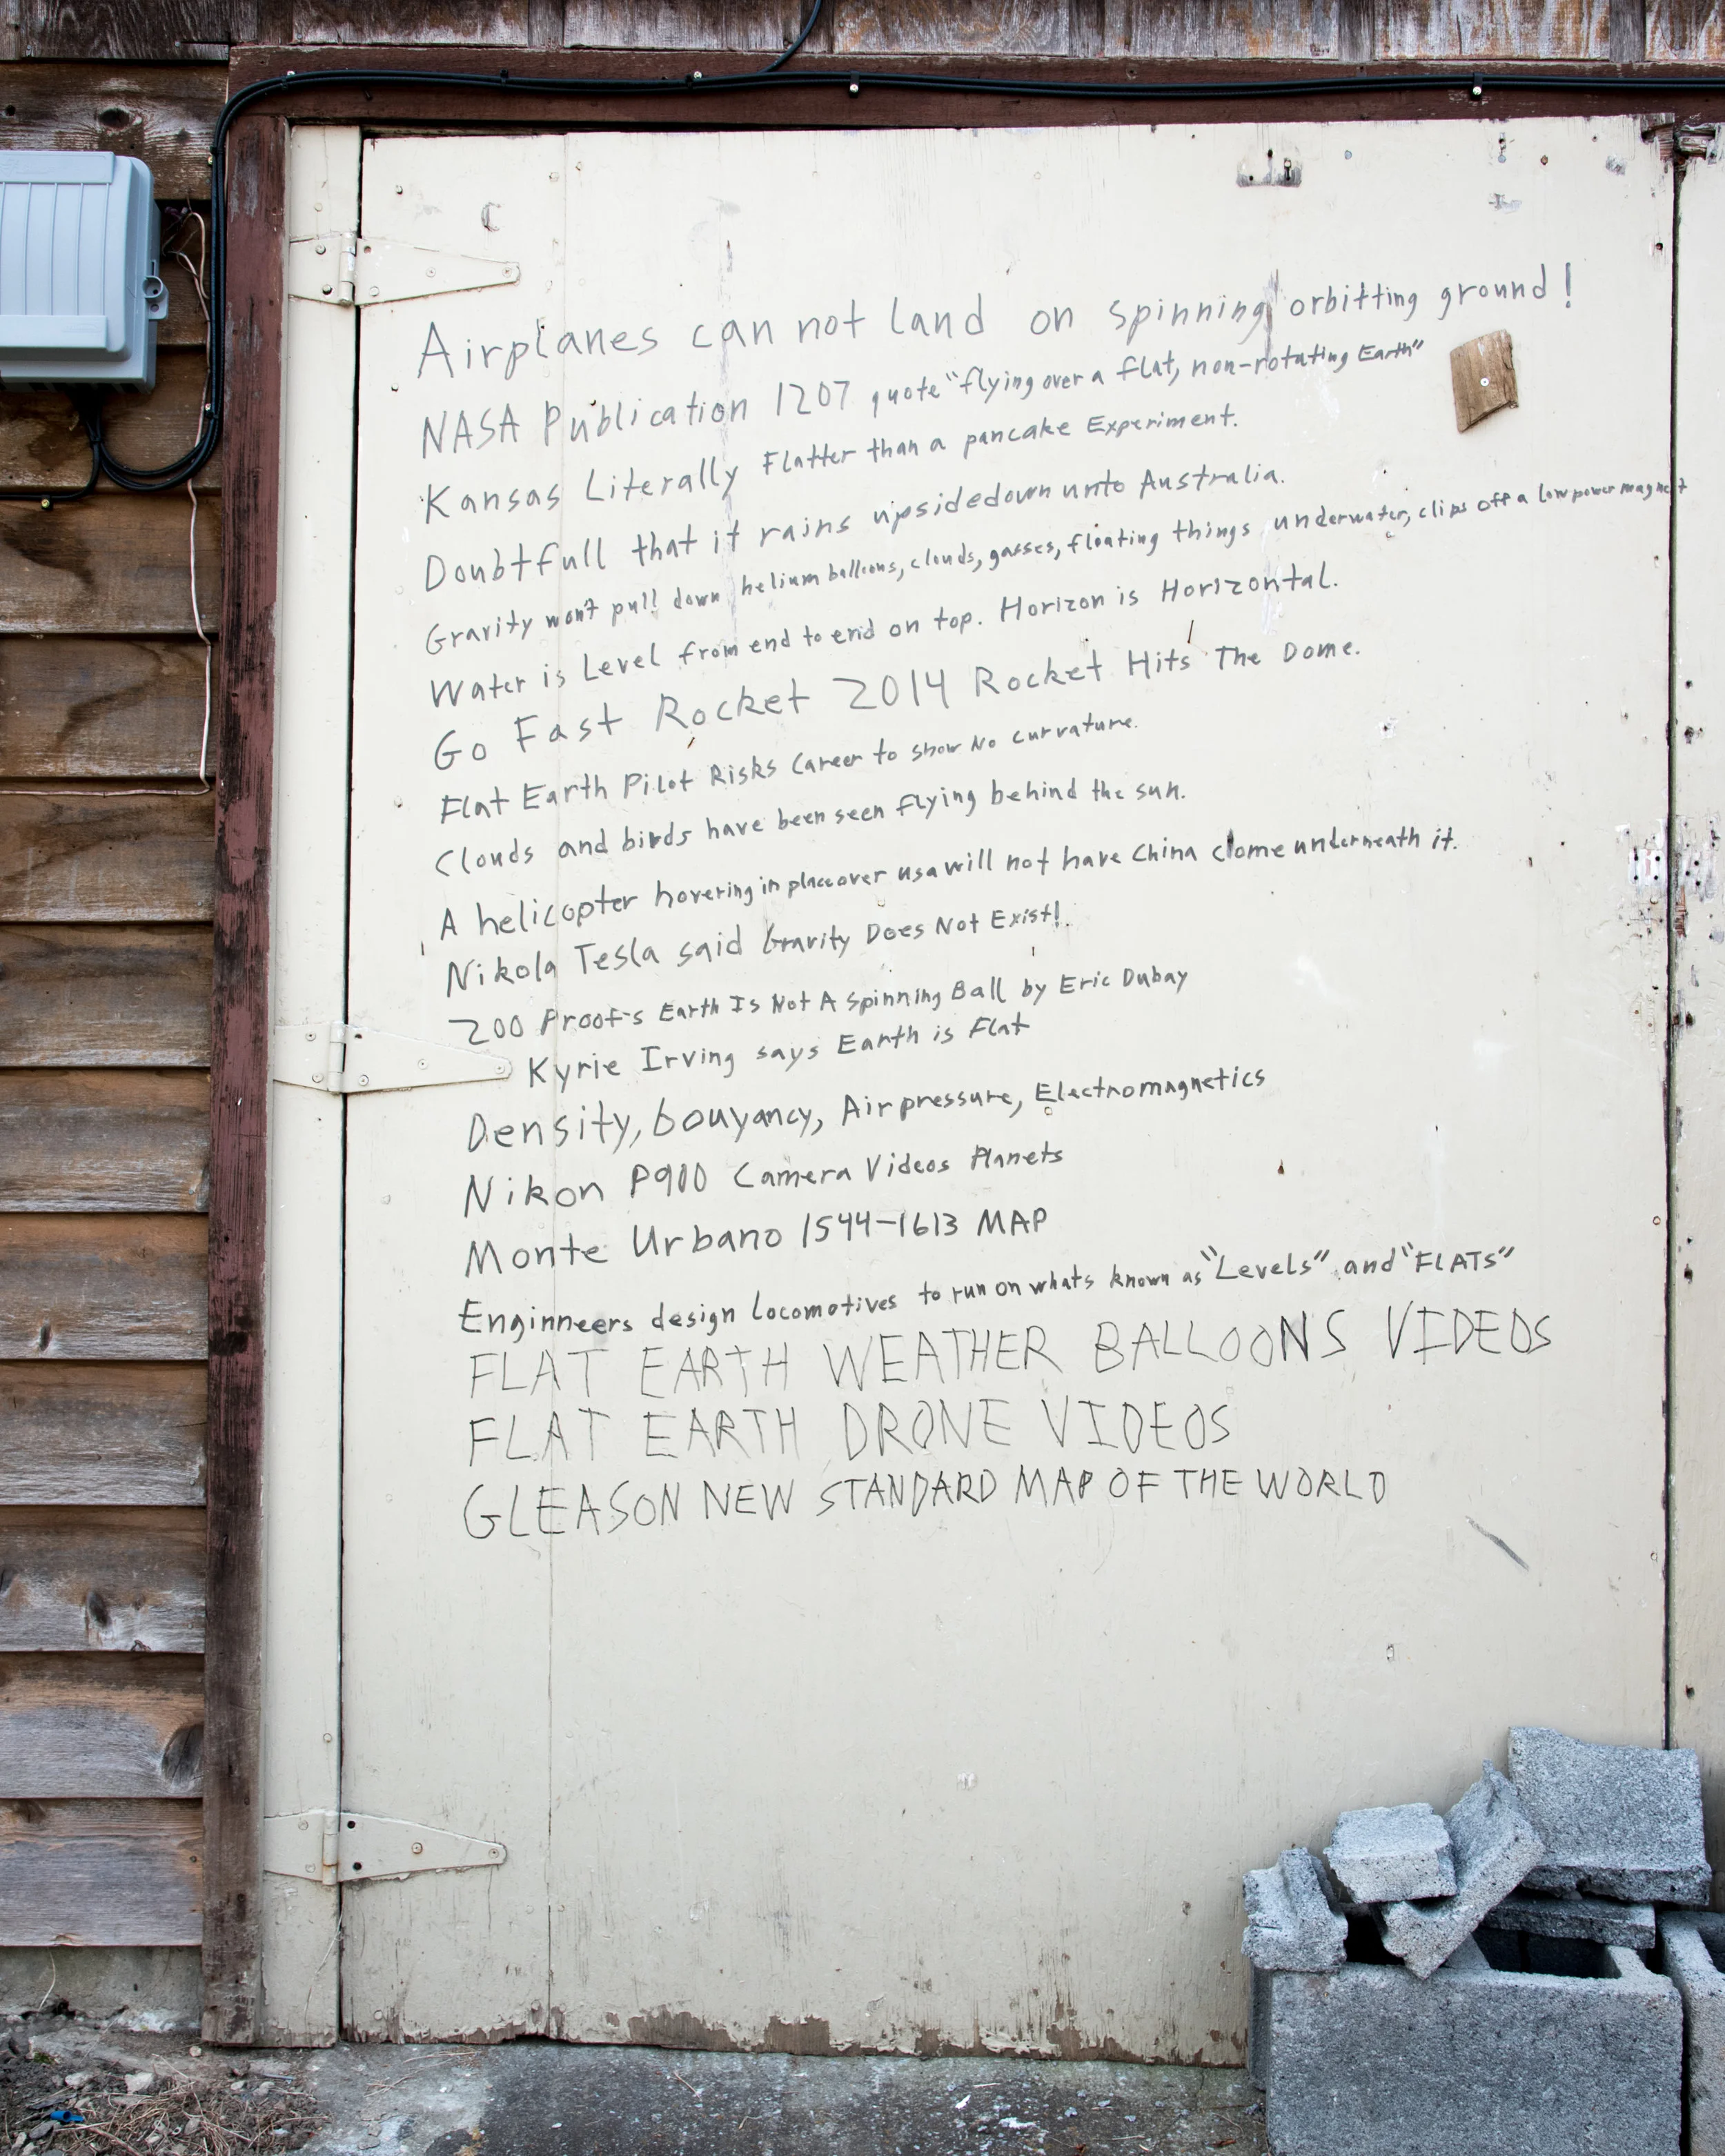 Airplanes can not land on spinning orbitting ground!
NASA Publication 1207 quote "flying over a flat, non-rotating Earth"
Kansas Literally Flatter than a pancake Experiment.
Doubtfull that it rains upsidedown unto Australia.
Gravity won't pull down helium balloons, clouds, gasses, floating things underwater, clips off a low power magnet
Water is Level from end to end on top. Horizon is Horizontal.
Go Fast Rocket 2014 Rocket Hits The Dome.
Flat Earth Pilot Risks Career to show No curvature.
Clouds and birds have been seen flying behind the sun.
A helicopter hovering in place over usa will not have China come underneath it.
Nikola Tesla said Gravity Does Not Exist!
200 Proof's Earth Is Not A Spinning Ball by Eric Dubay
Kyrie Irving says Earth is Flat
Density, bouyancy, Air pressure, Electromagnetics
Nikon P900 Camera Videos Planets
Monte Urbano 1544-1613 MAP
Enginneers design locomotives to run on whats known as "Levels" and "FLATS"
FLAT EARTH WEATHER BALLOONS VIDEOS
FLAT EARTH DRONE VIDEOS
GLEASON NEW STANDARD MAP OF THE WORLD